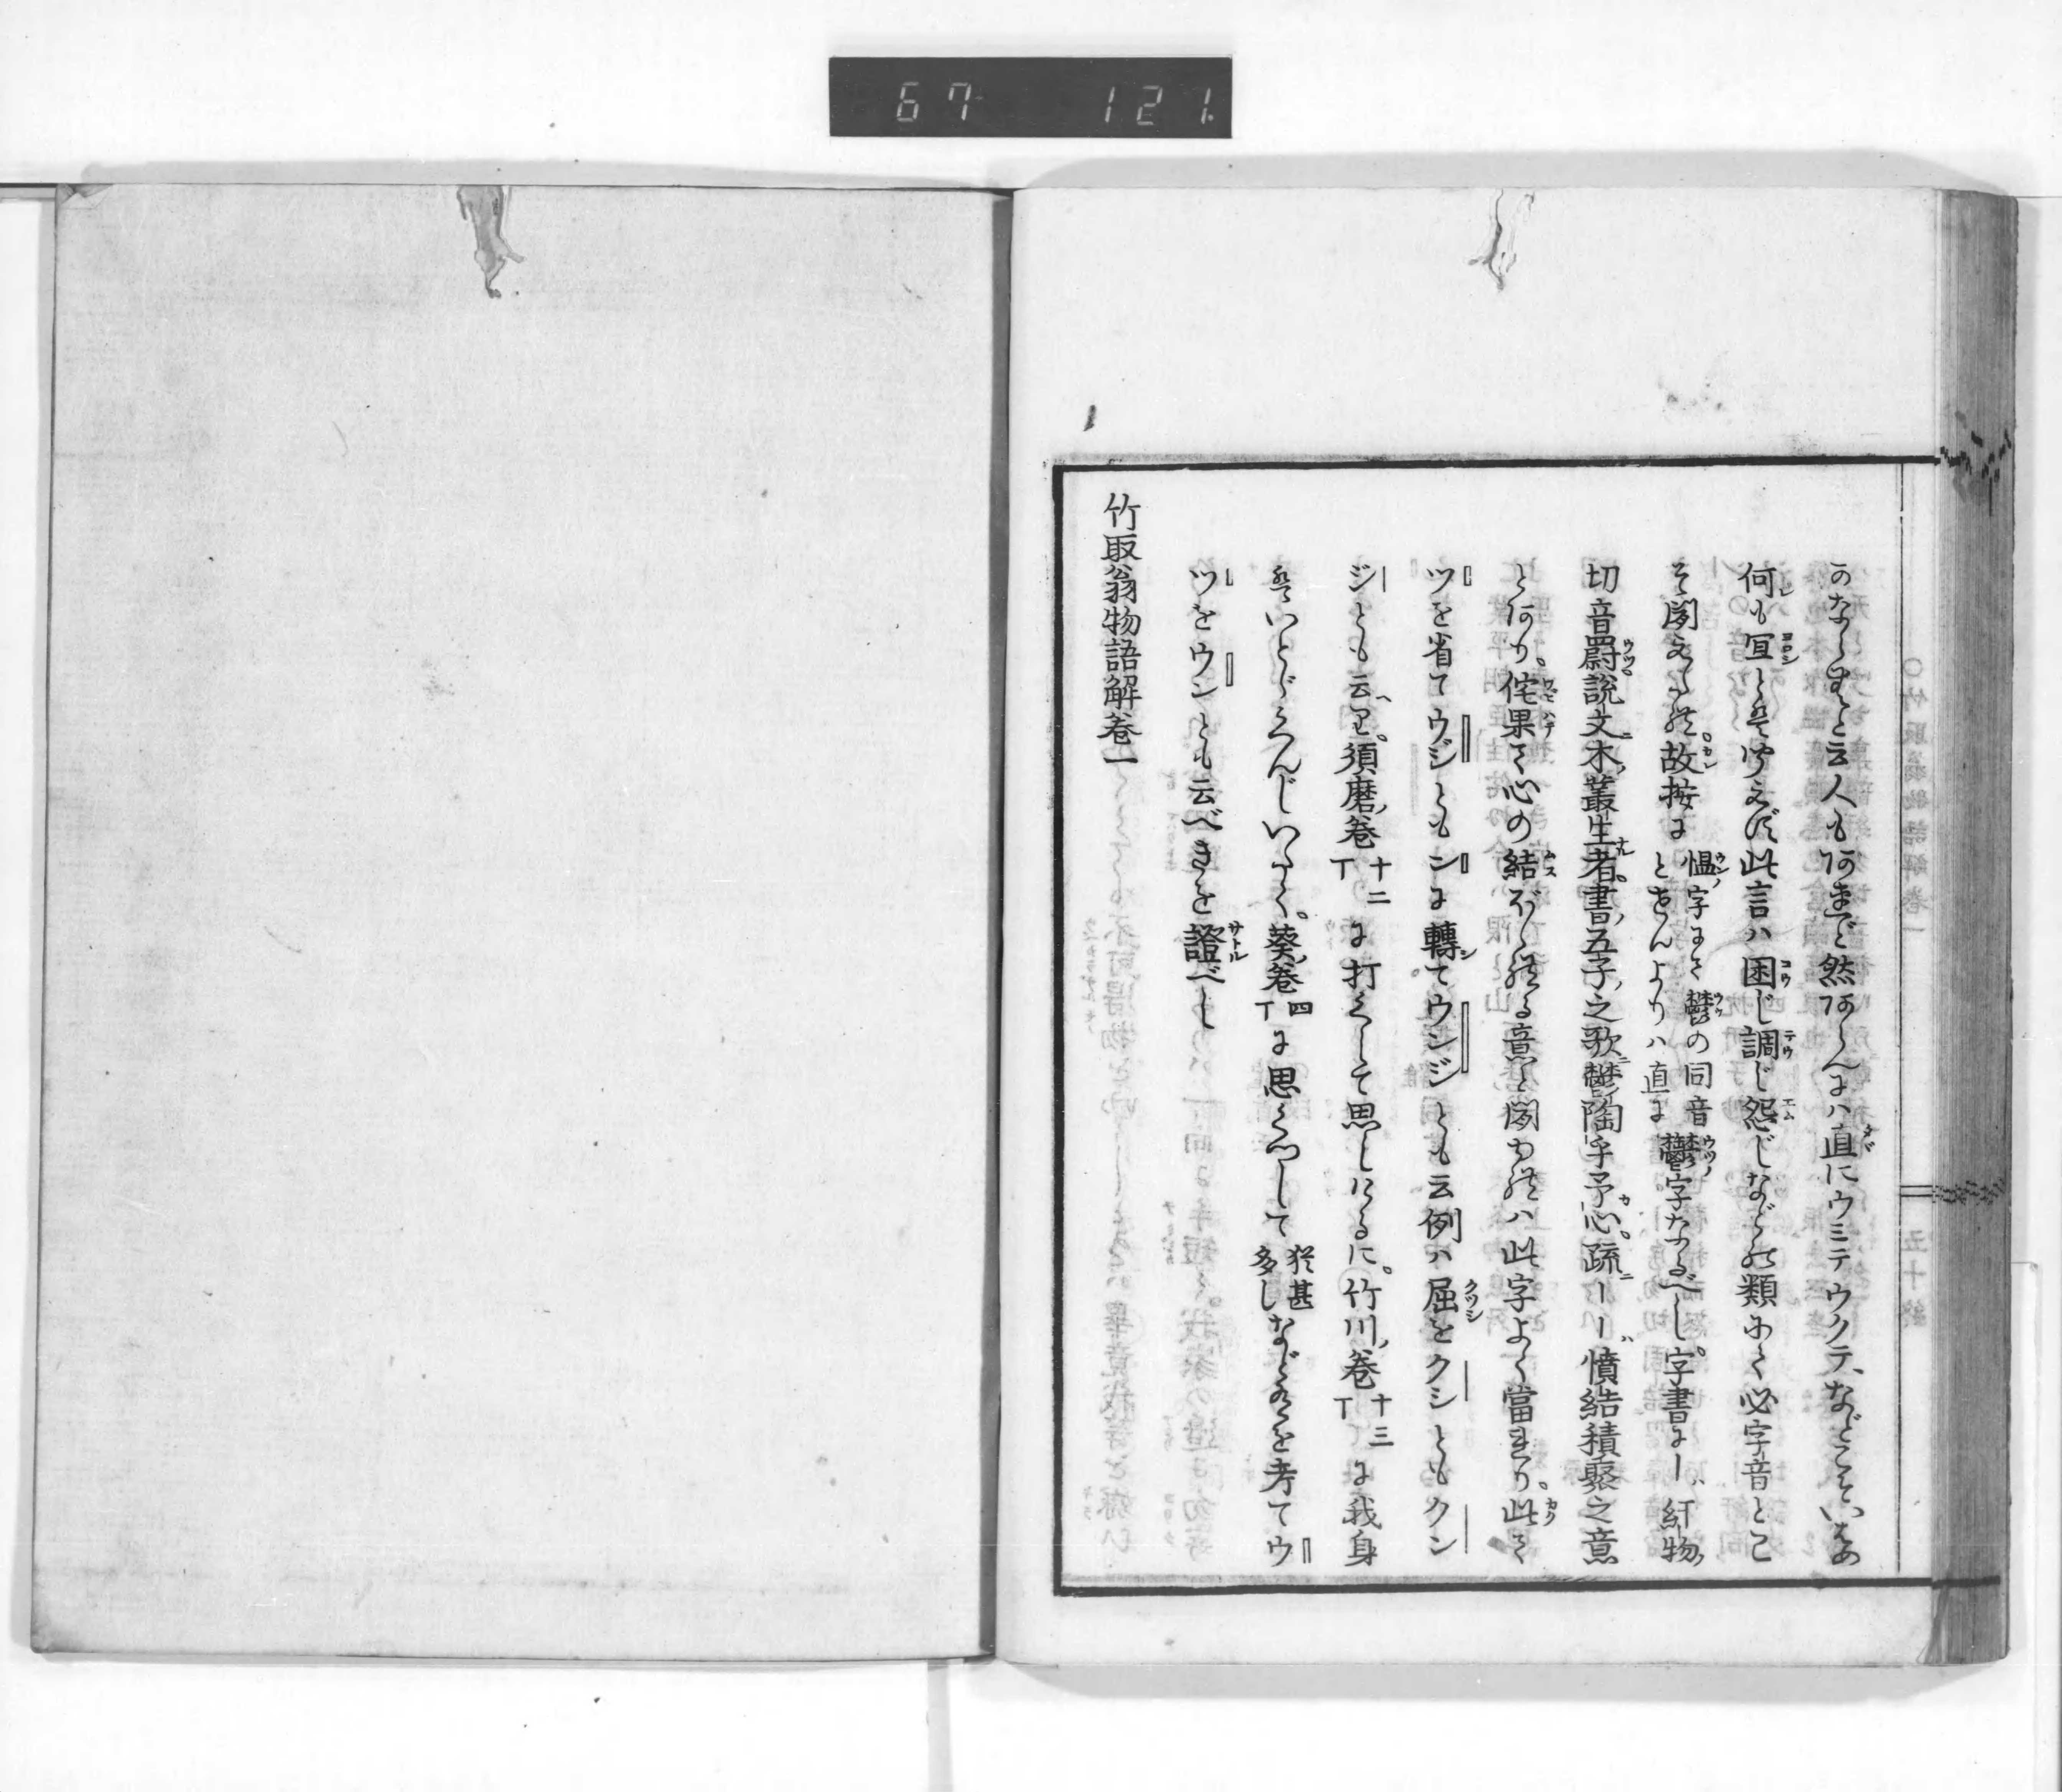 67 121
のならむと云人も何まど然あらんにハ直にウミテウクテ、などこそいはめ
何も宜しとは聞えず此言ハ困じ調じ怨じなどの類にて必字音とこ
そ聞えたれ。故按に慍ノ字にて鬱の同音とせんよりハ直に鬱ノ字なるべし。字書に――紆物ノ
切音罻。説文ニ木ノ叢生者。書ノ五子ノ之歌ニ鬱陶乎予心。疏ニ――ハ憤結積聚之意
とあり。侘果て心の結ぼゝれる意と聞ゆれハ此字よく當まり。此て
ツを省てウジともンに轉てウンジとも云例ハ屈をクシともクン
ジとも云ヘり。須磨ノ巻十二丁に打くして思しにるに。竹川ノ巻十三丁に我身
はいとゞくんじいたく。葵ノ巻四丁に思くつして猶甚多しなどあるを考てウ
ツをウンとも云べきを證べし
竹取翁物語解巻一
〇竹取翁物語解巻一 五十終